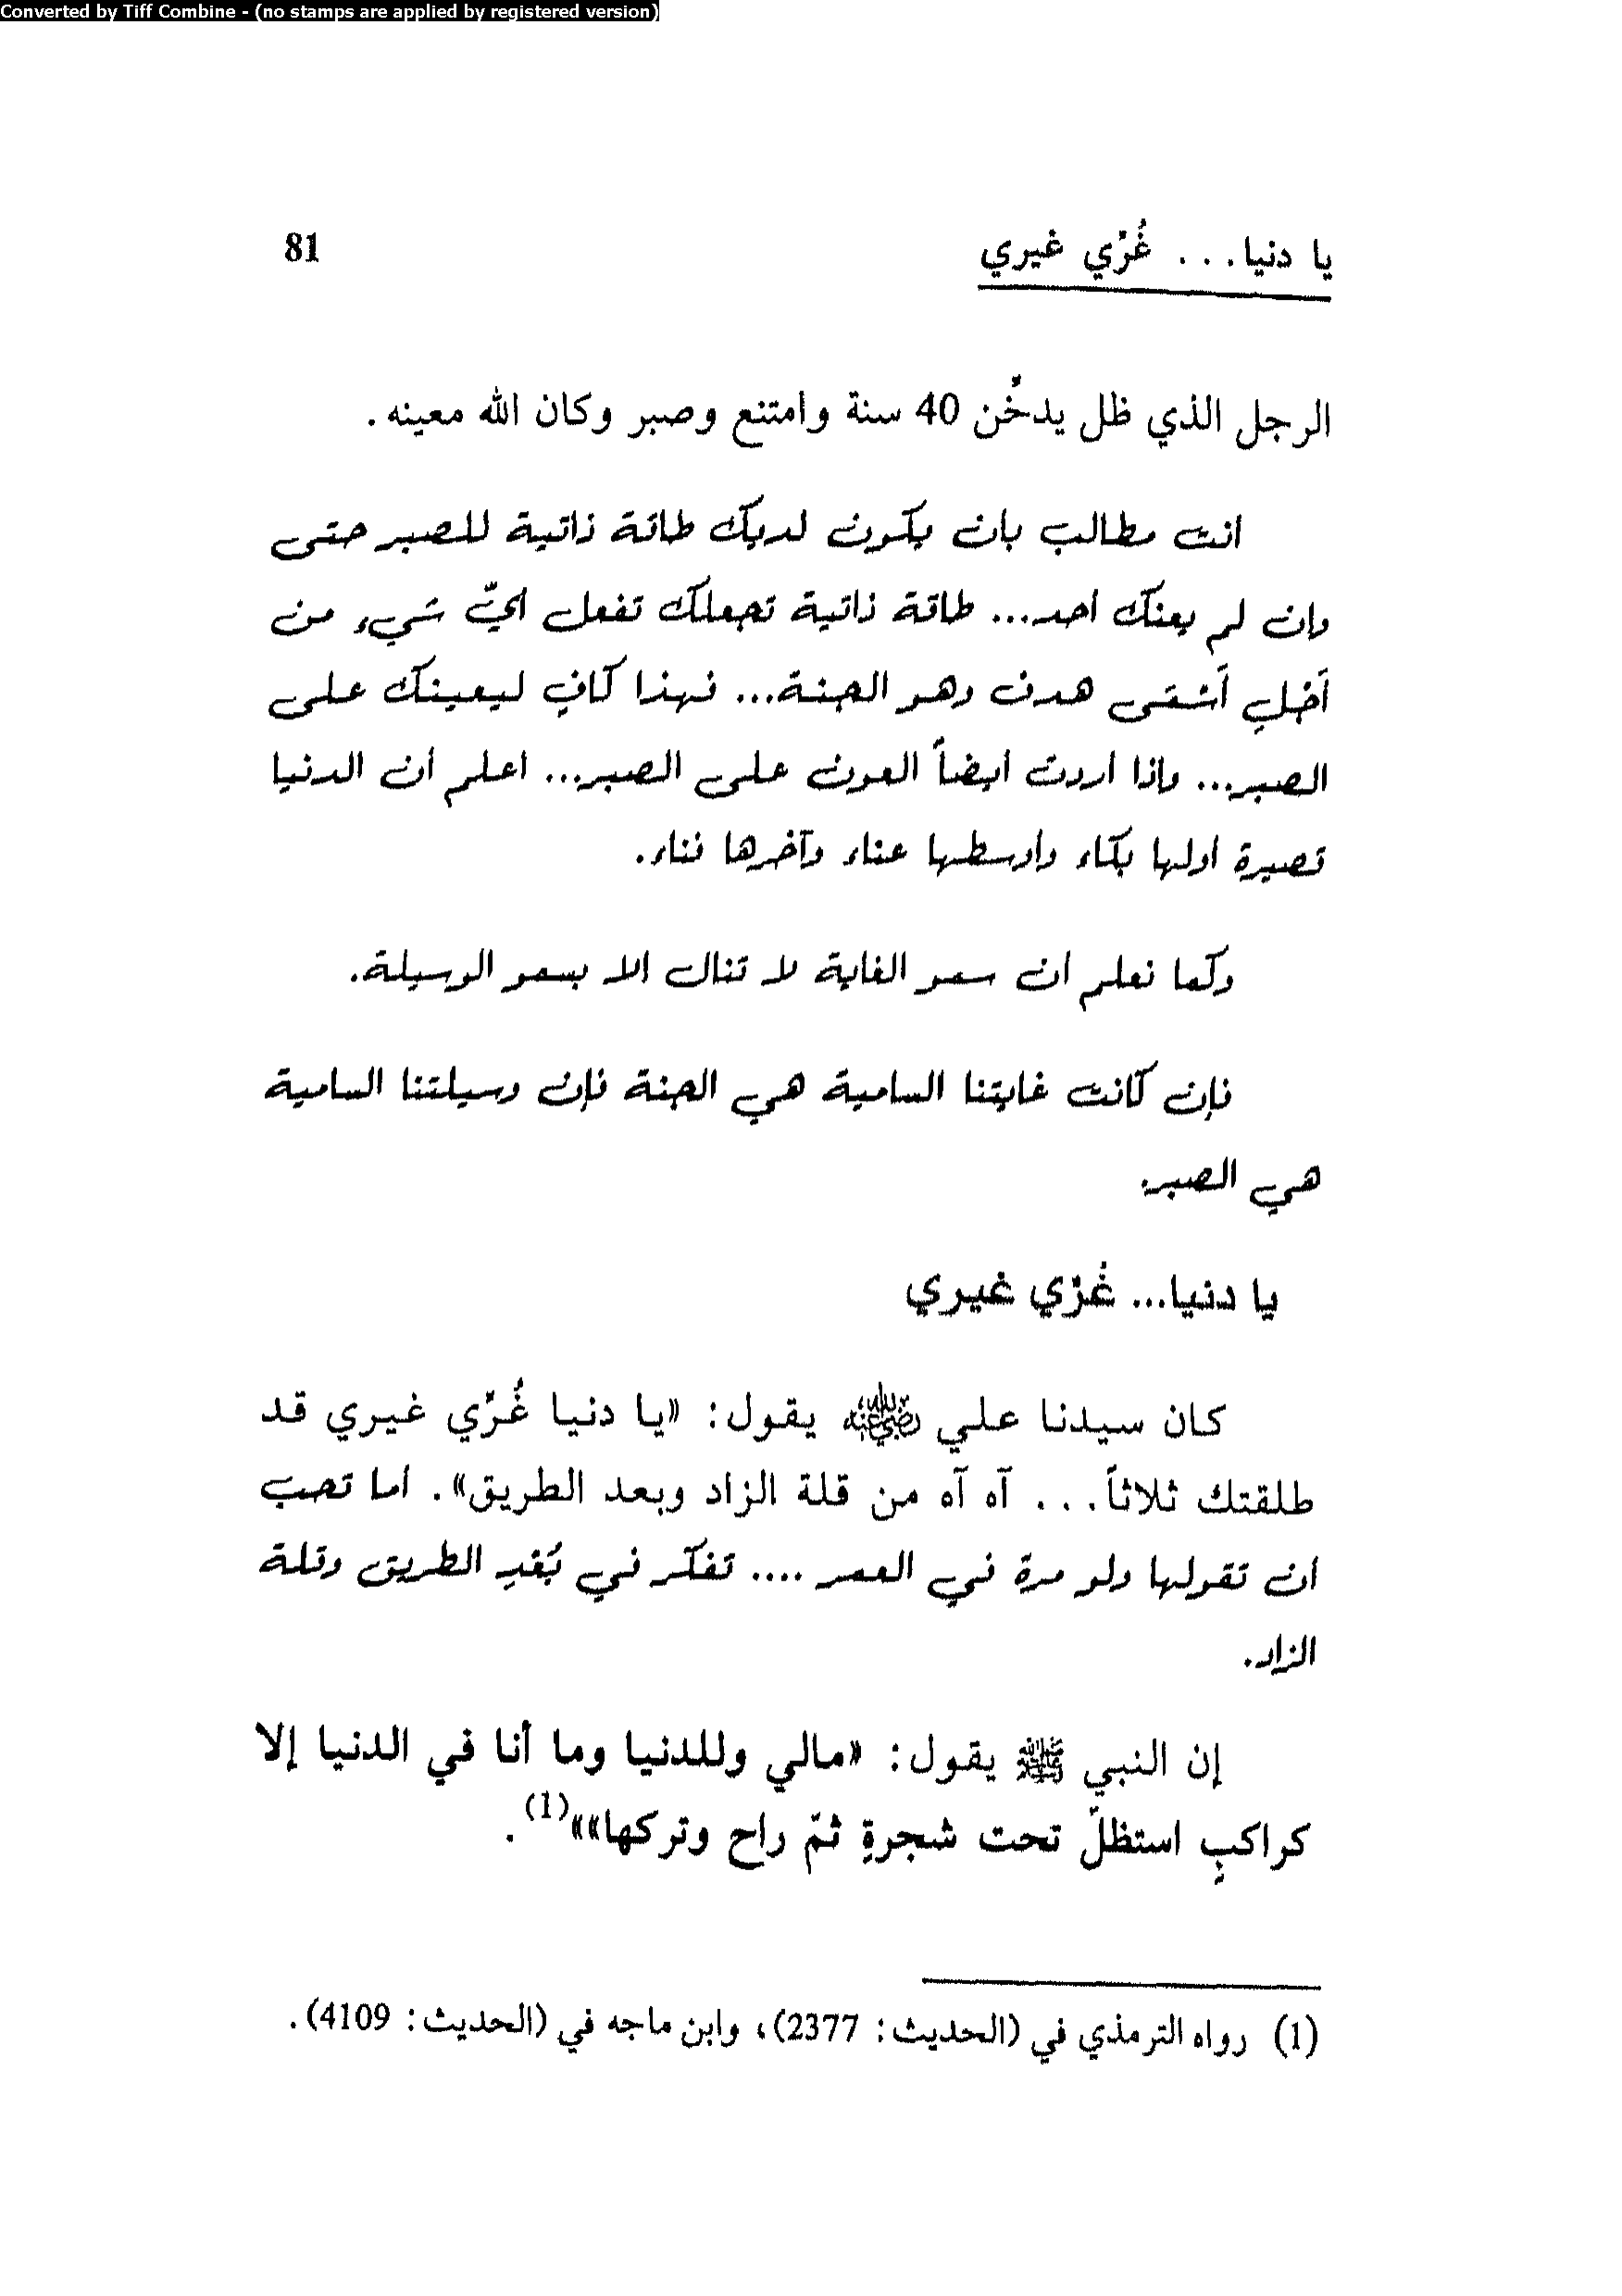 Converted by Tiff Combine - (no stamps are applied by registered version)
يا دنيا... غُرِّي غيري 81
الرجل الذي ظل يدخِّن 40 سنة وامتنع وصبر وكان الله معينه.
انت مطالب بان يكون لديك طاقة ذاتية للصبر حتى
وان لم يعنك احد... طاقة ذاتية تجعلك تفعل ايّ شيء من
أجلِ أشقى هدف وهو الجنة... فهذا كافٍ ليعينك على
الصبر... واذا اردت ايضاً العون على الصبر... اعلم أن الدنيا
قصيرة اولها بكاء واوسطها عناء وآخرها فناء.
وكما نعلم ان سمو الغاية لا تنال الا بسمو الوسيلة.
فإن كانت غايتنا السامية هي الجنة فإن وسيلتنا السامية
هي الصبر.
يا دنيا... غُرِّي غيري
كان سيدنا علي رضي الله عنه يقول: «يا دنيا غُرِّي غيري قد
طلقتك ثلاثاً... آه آه من قلة الزاد وبعد الطريق». أما تحب
ان تقولها ولو مرة في العمر .... تفكر في بُعدِ الطريق وقلة
الزاد.
إن النبي ﷺ يقول: «مالي وللدنيا وما أنا في الدنيا إلا
كراكبٍ استظلّ تحت شجرةٍ ثمّ راح وتركها»»(1).
(1) رواه الترمذي في (الحديث: 2377)، وابن ماجه في (الحديث: 4109).